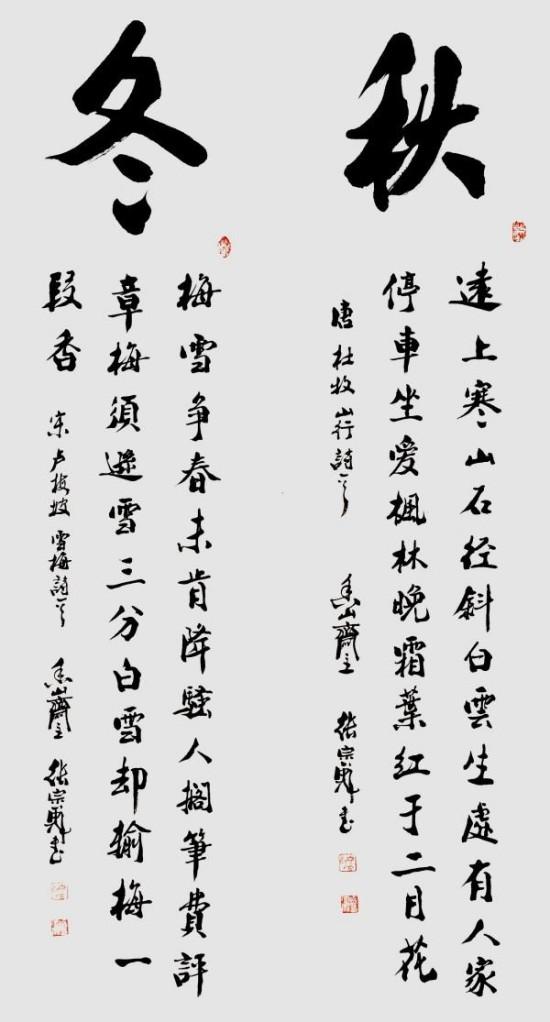 秋
遠上寒山石径斜白雲生處有人家
停車坐爱楓林晚霜葉红于二月花
唐 杜牧 山行詩一首 香山齋主 張宗
冬
梅雪争春未肯降騷人擱筆費評
章梅須遜雪三分白雪却輸梅一
段香 宋 卢梅坡 雪梅詩一首 香山齋主 張宗